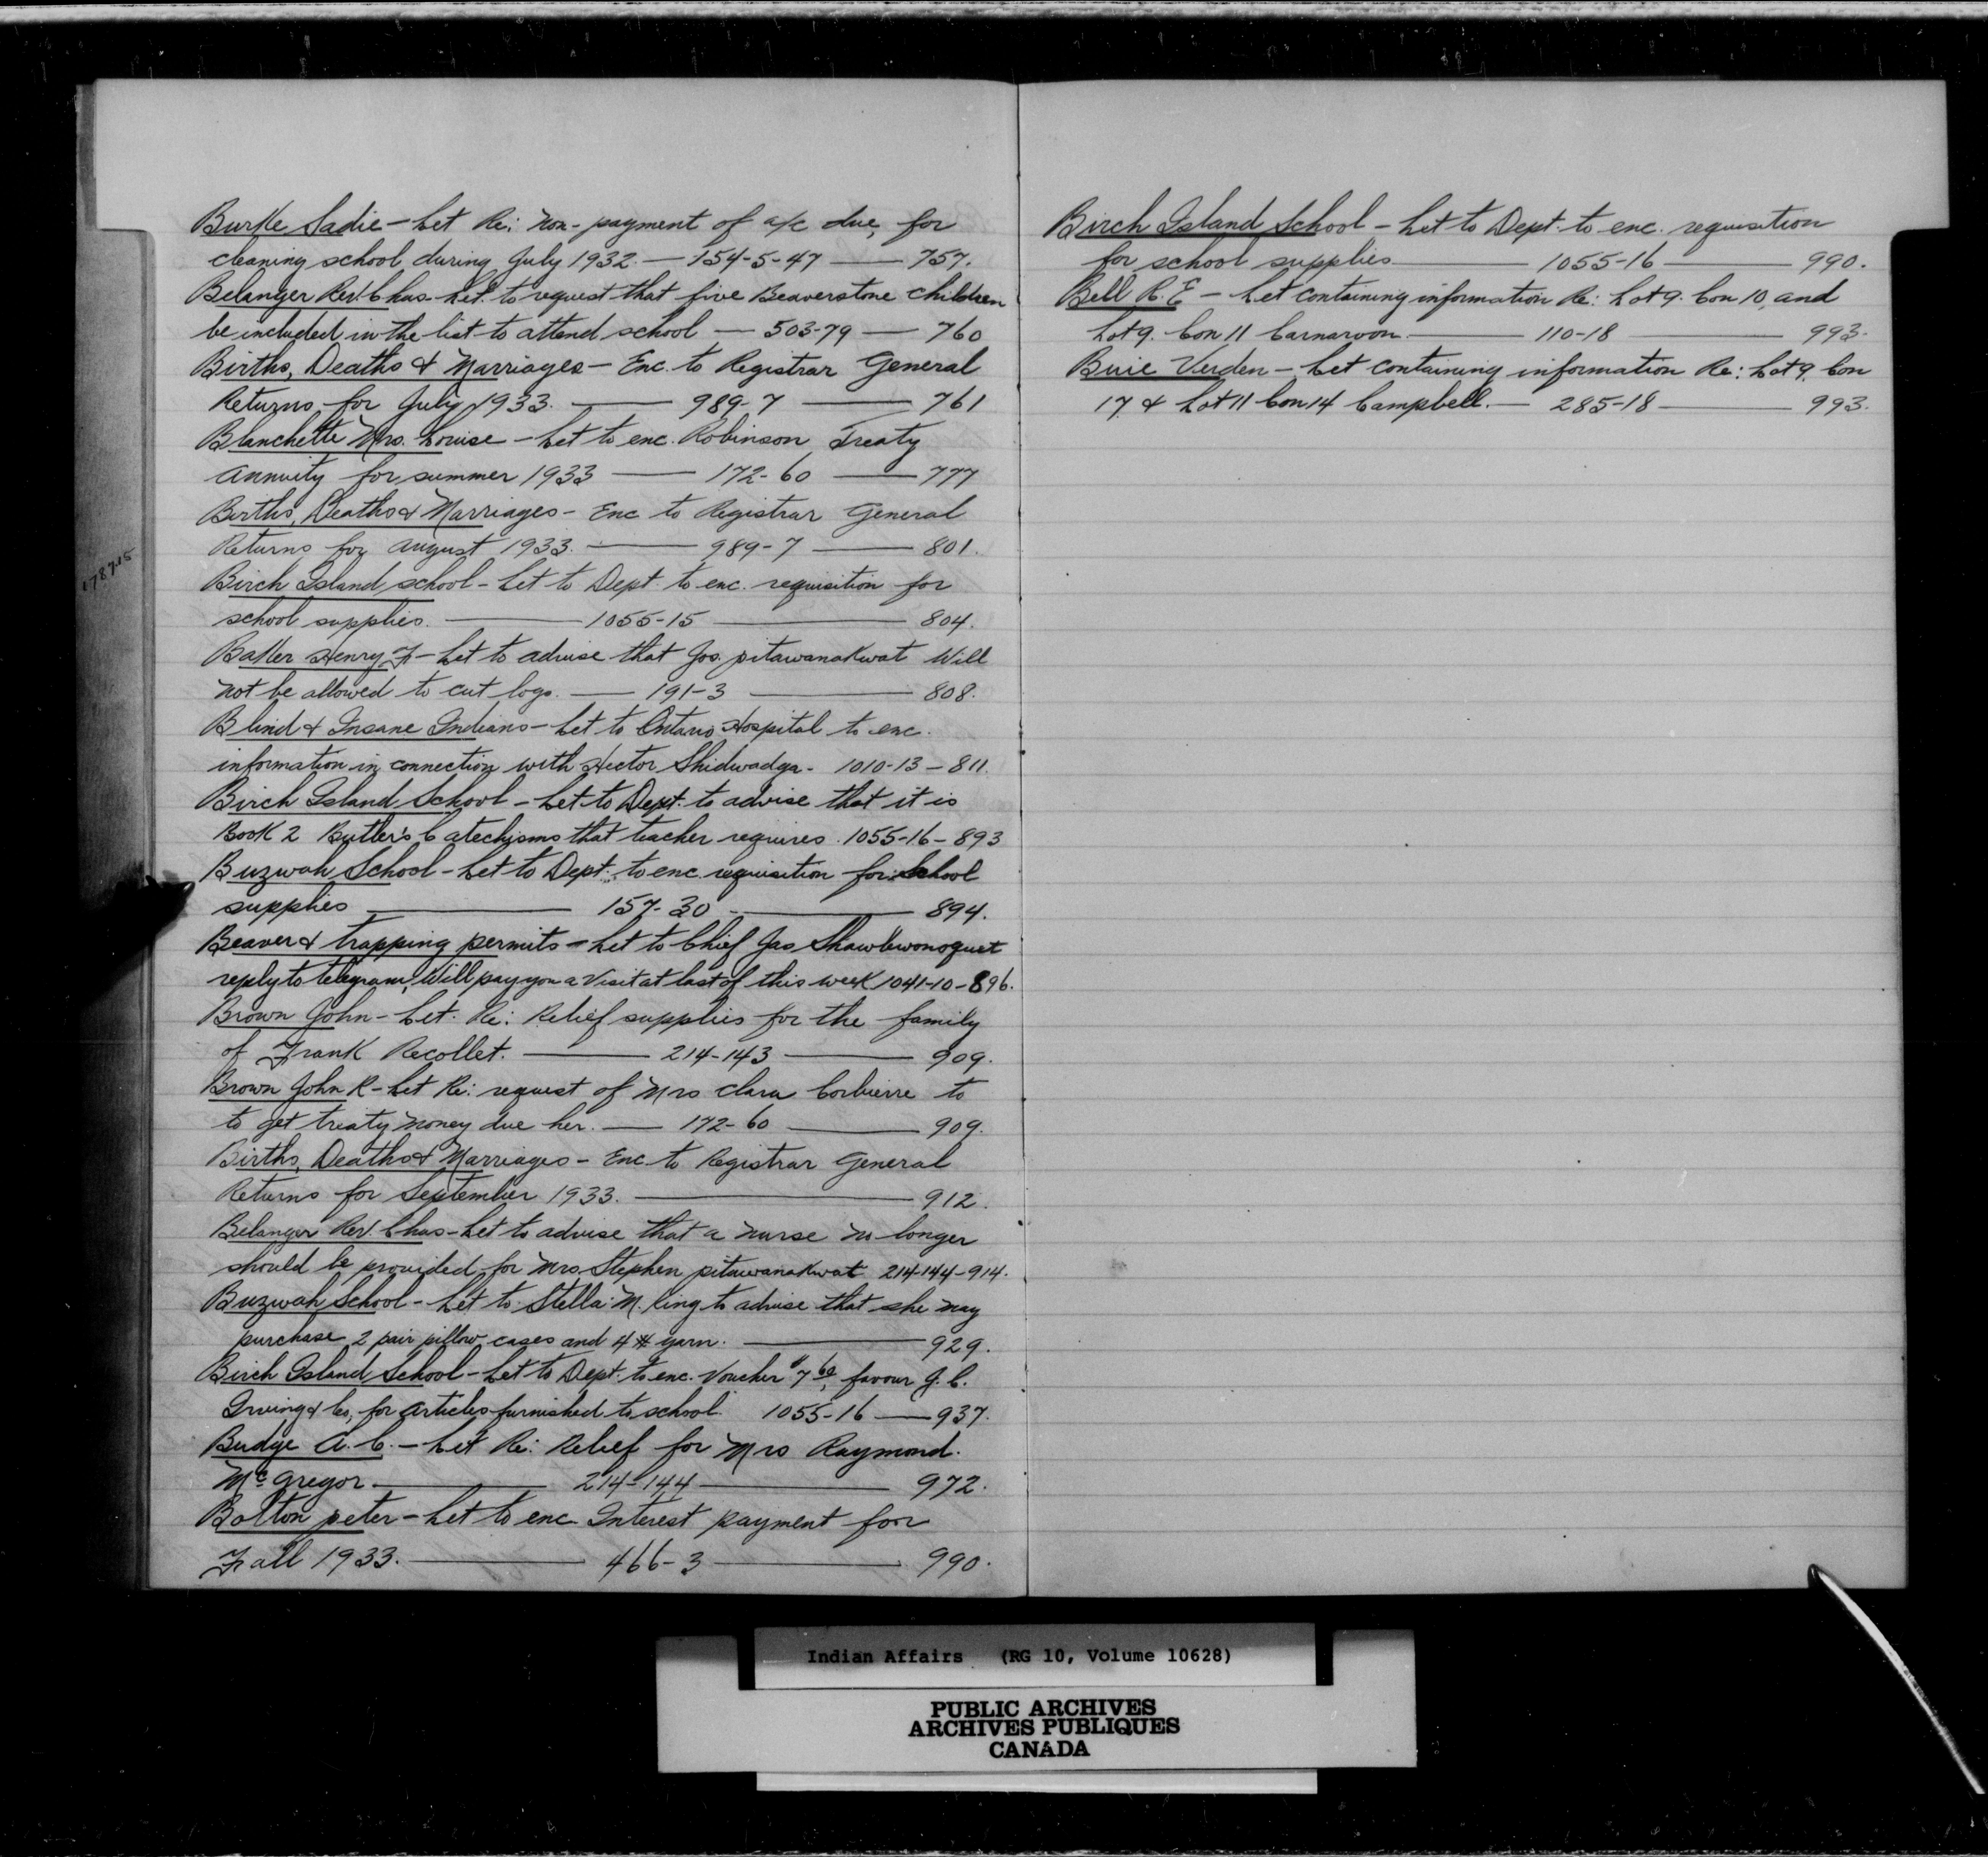 Burke Sadie - Let Re: Non-payment of a/c due, for
cleaning school during July 1932. — 154-5-47 — 757.
Belanger Rev. Chas - Let. to request that five Beaverstone children
be included in the list to attend school — 503-79 — 760
Births, Deaths & Marriages - Enc. to Registrar General
Returns for July 1933. — 989-7 — 761
Blanchette Mrs. Louise - Let to enc. Robinson Treaty
Annuity for summer 1933 — 172-60 — 777
Births, Deaths & Marriages - Enc to Registrar General
Returns for August 1933. — 989-7 — 801.
Birch Island school - Let to Dept. to enc. requisition for
school supplies. — 1055-15 — 804.
Baker Henry F - Let to advise that Jos. pitawanakwat Will
not be allowed to cut logs. — 191-3 — 808.
Blind & Insane Indians - Let to Ontario Hospital to enc.
information in connection with Hector Shidwadga - 1010-13 - 811.
Birch Island School - Let to Dept. to advise that it is
Book 2 Butler's Catechisms that teacher requires. 1055-16 - 893
Buzwah School - Let to Dept. to enc. requisition for School
supplies — 157-30 — 894.
Beaver & trapping permits - Let to Chief Jas
reply to telegram, Will pay you a Visit at last of this week 1041-10 - 896.
Brown John - Let. Re: Relief supplies for the family
of Frank Recollet. — 214-143 — 909.
Brown John R - Let Re: request of Mrs Clara Corbierre to
to get treaty money due her. — 172-60 — 909.
Births, Deaths & Marriages - Enc. to Registrar General
Returns for September 1933. — 912.
Belanger Rev. Chas - Let to advise that a nurse no longer
should be provided for Mrs. Stephen pitawanakwat 214-144 - 914.
Buzwah School - Let to Stella M. King to advise that she may
purchase 2 pair pillow cases and 4 # yarn. — 929.
Birch Island School - Let to Dept. to enc. Voucher $7.62, favour J. C.
Irving & Co, for articles furnished to school. 1055-16 — 937.
Budge A. C. - Let Re: Relief for Mrs Raymond.
McGregor — 214-144 — 972.
Bolton peter - Let to enc Interest payment for
Fall 1933. — 466-3 — 990.
1787-15
Birch Island School - Let to Dept. to enc. requisition
for school supplies — 1055-16 — 990.
Bell R. E - Let containing information Re: Lot 9. Con 10, and
Lot 9. Con 11 Carnarvon. — 110-18 — 993.
Buie Verden - Let containing information Re: Lot 9, Con
17, & Lot 11 Con 14 Campbell. — 285-18 — 993.
Indian Affairs (RG 10, Volume 10628)
PUBLIC ARCHIVES
ARCHIVES PUBLIQUES
CANADA